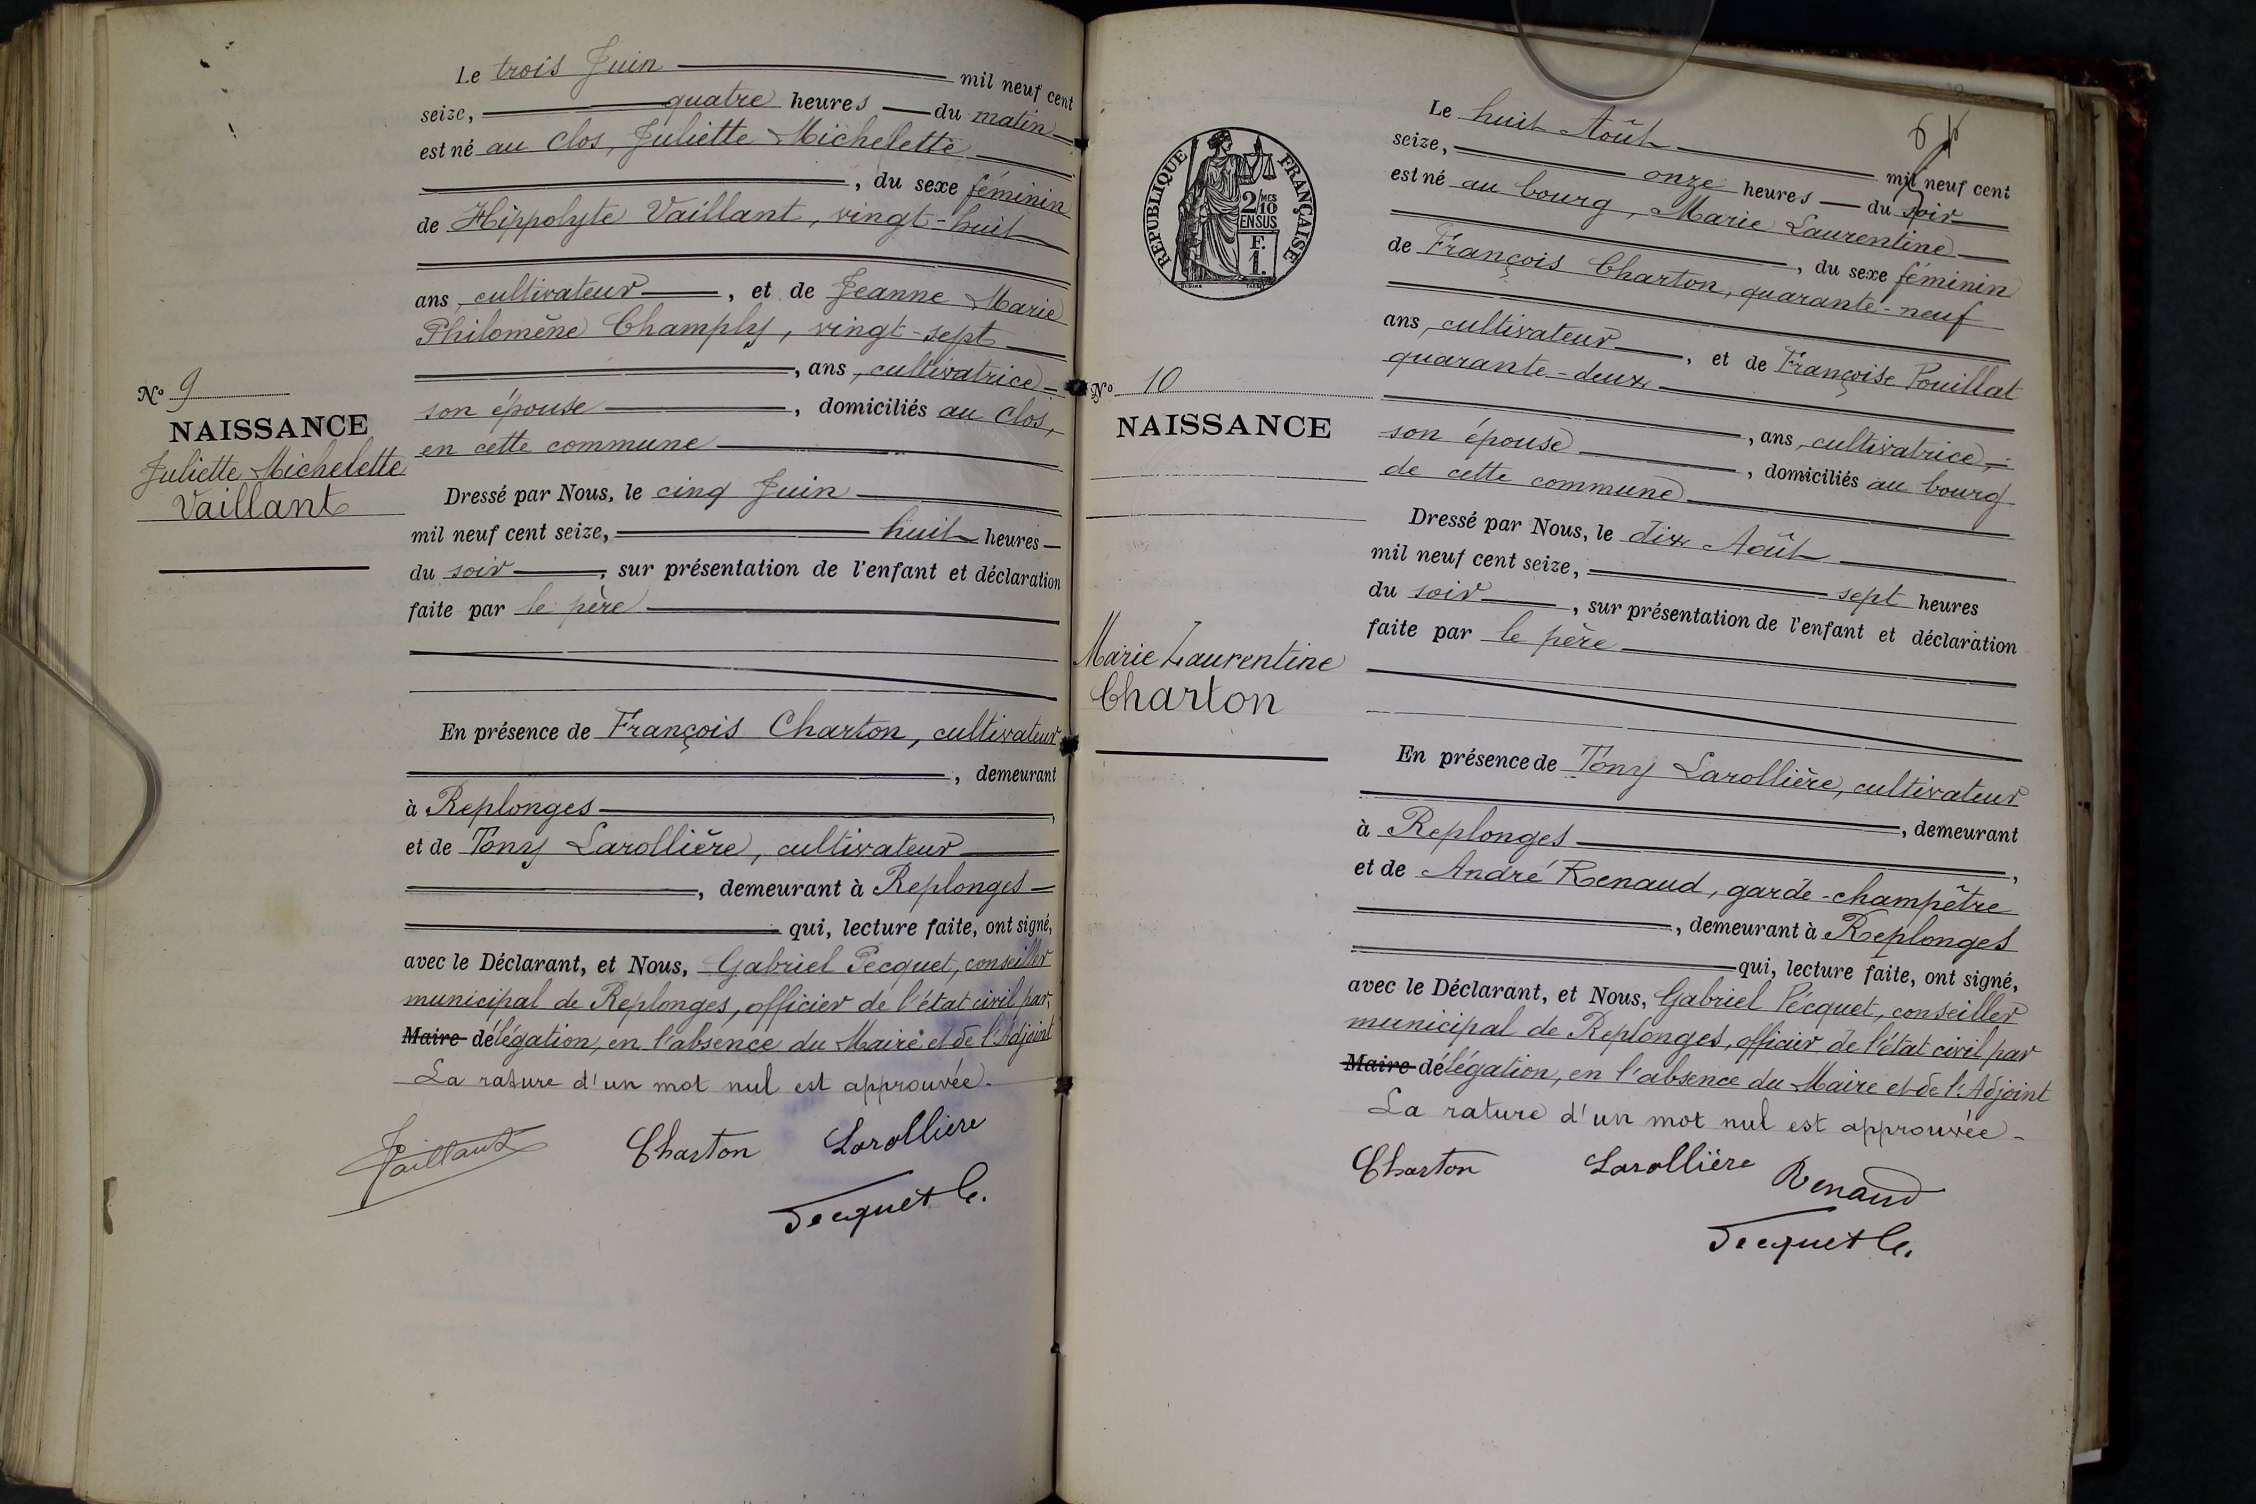 Le trois Juin mil neuf cent
seize, quatre heures du matin
est né au Clos, Juliette Michelette
, du sexe féminin
de Hippolyte Vaillant, vingt-huit
ans, cultivateur, et de Jeanne Marie
Philomène Champly, vingt-sept
, ans, cultivatrice
son épouse, domiciliés au Clos,
en cette commune
N° 9
NAISSANCE
Juliette Michelette
Vaillant
Dressé par Nous, le cinq Juin
mil neuf cent seize, huit heures
du soir, sur présentation de l'enfant et déclaration
faite par le père
En présence de François Charton, cultivateur
, demeurant
à Replonges,
et de Tony Larollière, cultivateur
, demeurant à Replonges
qui, lecture faite, ont signé,
avec le Déclarant, et Nous, Gabriel Pecquet, conseiller
municipal de Replonges, officier de l'état civil par
Maire délégation, en l'absence du Maire et de l'Adjoint
La rature d'un mot nul est approuvée.
Vaillant Charton Larollière
Pecquet G.
RÉPUBLIQUE FRANÇAISE
2/10
EN SUS
F.
1.
Le huit Août mil neuf cent
seize, onze heures du soir
est né au bourg, Marie Laurentine
, du sexe féminin
de François Charton, quarante-neuf
ans, cultivateur, et de Françoise Pouillat
quarante-deux
, ans, cultivatrice,
son épouse, domiciliés au bourg
de cette commune
N° 10
NAISSANCE
Marie Laurentine
Charton
Dressé par Nous, le dix Août
mil neuf cent seize, sept heures
du soir, sur présentation de l'enfant et déclaration
faite par le père
En présence de Tony Larollière, cultivateur
, demeurant
à Replonges,
et de André Renaud, garde-champêtre
, demeurant à Replonges
qui, lecture faite, ont signé,
avec le Déclarant, et Nous, Gabriel Pecquet, conseiller
municipal de Replonges, officier de l'état civil par
Maire délégation, en l'absence du Maire et de l'Adjoint
La rature d'un mot nul est approuvée
Charton Larollière Renaud
Pecquet G.